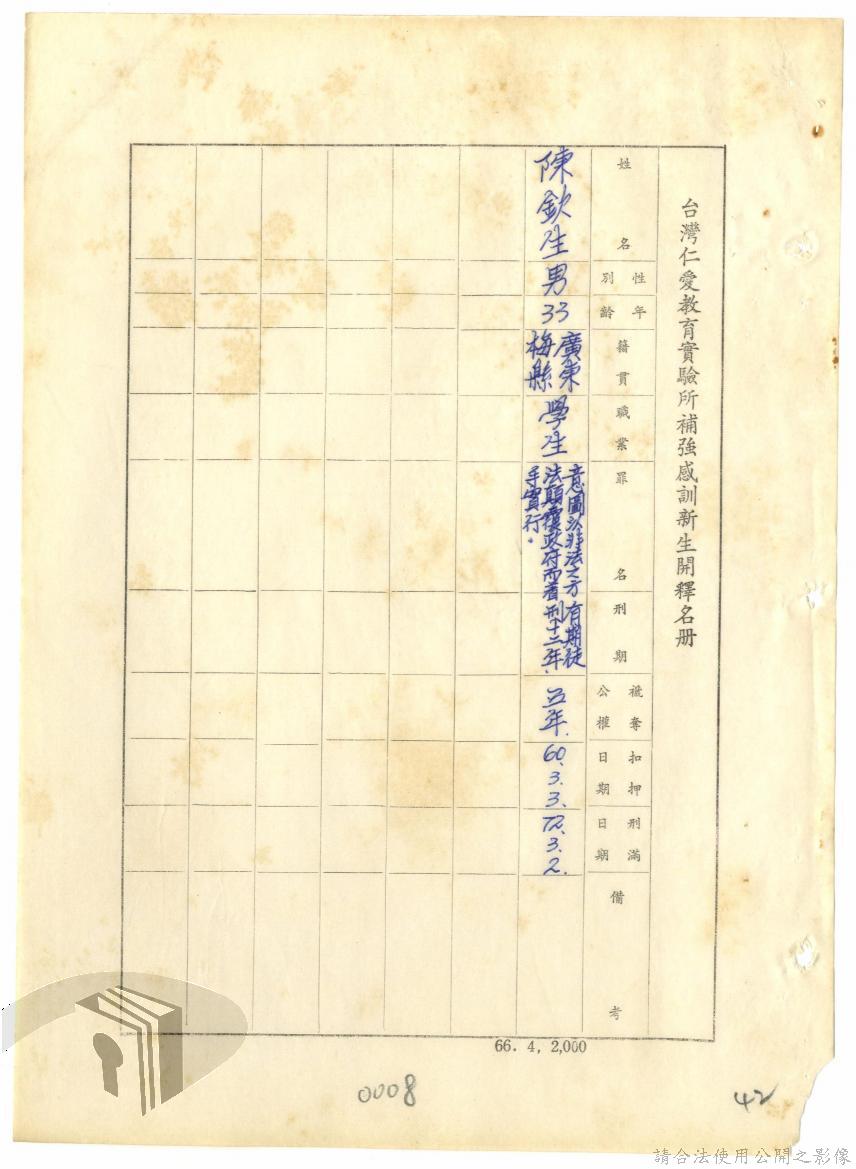 台灣仁愛教育實驗所補強感訓新生開釋名册
姓名
性別
年齡
籍貫
職業
罪名
刑期
褫奪公權
扣押日期
刑滿日期
備考
陳欽生
男
33
廣東
梅縣
學生
意圖以非法之方
法顛覆政府而着
手實行。
有期徒
刑十二年.
五年.
60.3.3.
72.3.2.
66. 4, 2,000
0008
42
請合法使用公開之影像